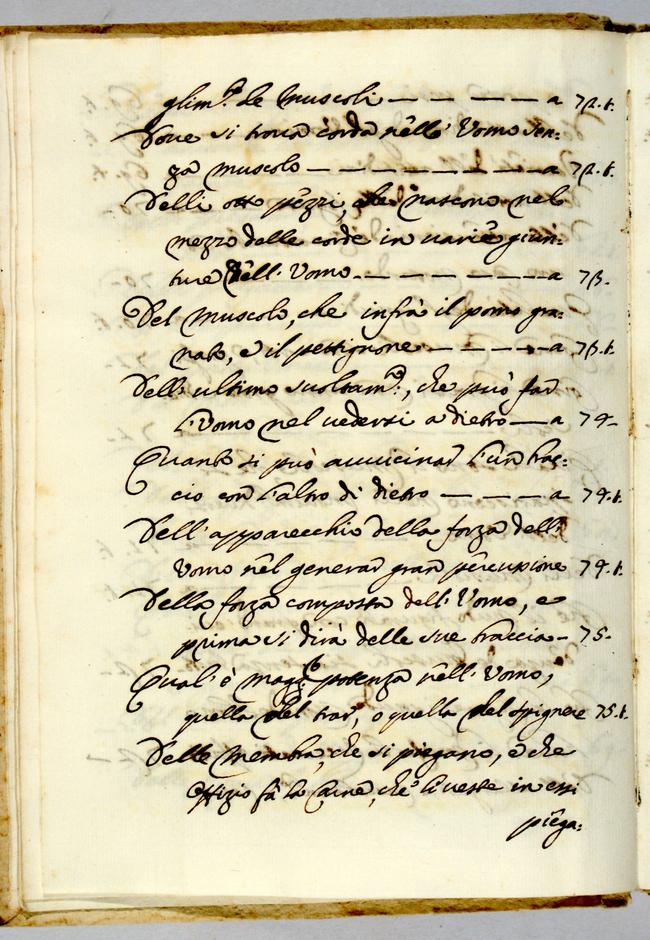 glim.ti de Muscoli — — — — a 72.t.
Doue si troua corda nell' Vomo sen=
za muscolo — — — — — — — a 72.t.
Delli otto pezzi, che nascono nel
mezzo delle corde in uarie giun=
ture dell' Vomo — — — — — a 73.
Del Muscolo, che infrà il pomo gra=
nato, e il pettignone — — — — a 73.t.
Dell' ultimo suoltam.to, che può far
l'Vomo nel uedersi a dietro — a 74.
Quanto si può auuicinar l'un brac=
cio con l'altro di dietro — — — a 74.t.
Dell' apparecchio della forza dell'
Vomo nel generar gran percussione 74.t.
Della forza composta dell' Vomo, e
prima si dirà delle sue braccia — 75.
Qual' è magg.r potenza nell' Vomo,
quella del trar, o quella del spignere 75.t.
Delle membra, che si piegano, e che
offizio fà la Carne, che li ueste in essi
piega=